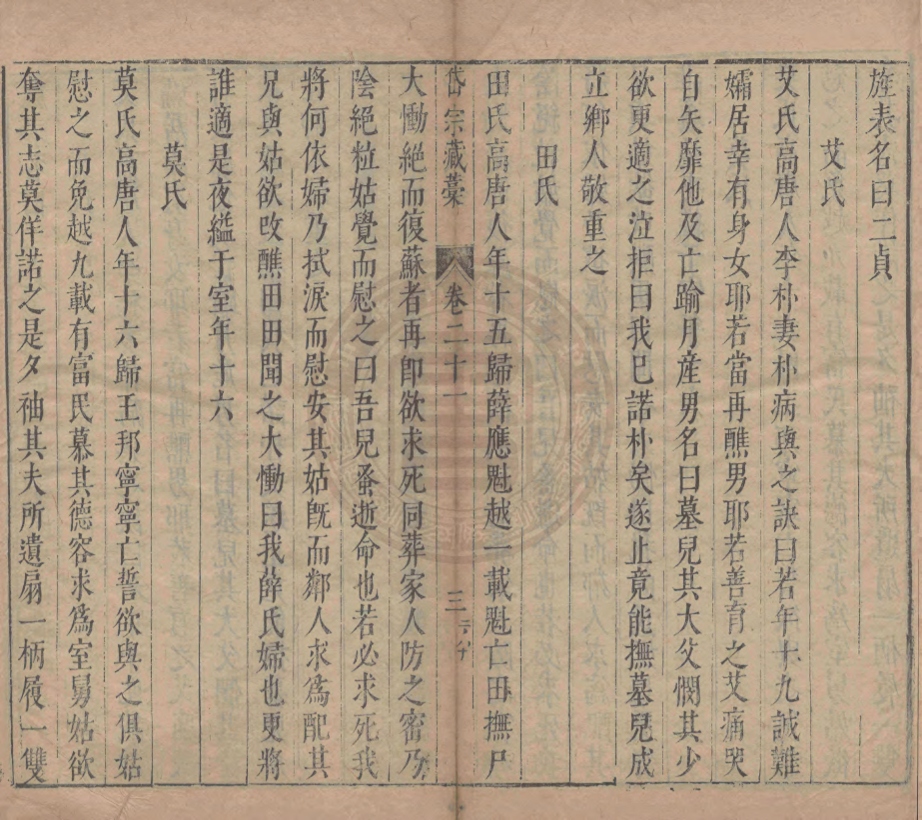 旌表名曰二貞
艾氏
艾氏高唐人李朴妻朴病與之訣曰若年十九誠難
孀居幸有身女耶若當再醮男耶若善育之艾痛哭
自矢靡他及亡踰月産男名曰墓兒其大父憫其少
欲更適之泣拒曰我已諾朴矣遂止竟能撫墓兒成
立鄉人敬重之
田氏
田氏高唐人年十五歸薛應魁越一載魁亡田撫尸
岱宗藏藁 卷二十一 三
大慟絕而復蘇者再卽欲求死同葬家人防之密乃
陰絕粒姑覺而慰之曰吾兒蚤逝命也若必求死我
將何依婦乃拭淚而慰安其姑旣而鄰人求爲配其
兄與姑欲攺醮田田聞之大慟曰我薛氏婦也更將
誰適是夜縊于室年十六
莫氏
莫氏高唐人年十六歸王邦寧寧亡誓欲與之俱姑
慰之而免越九載有富民慕其德容求爲室舅姑欲
奪其志莫佯諾之是夕袖其夫所遺扇一柄履一雙